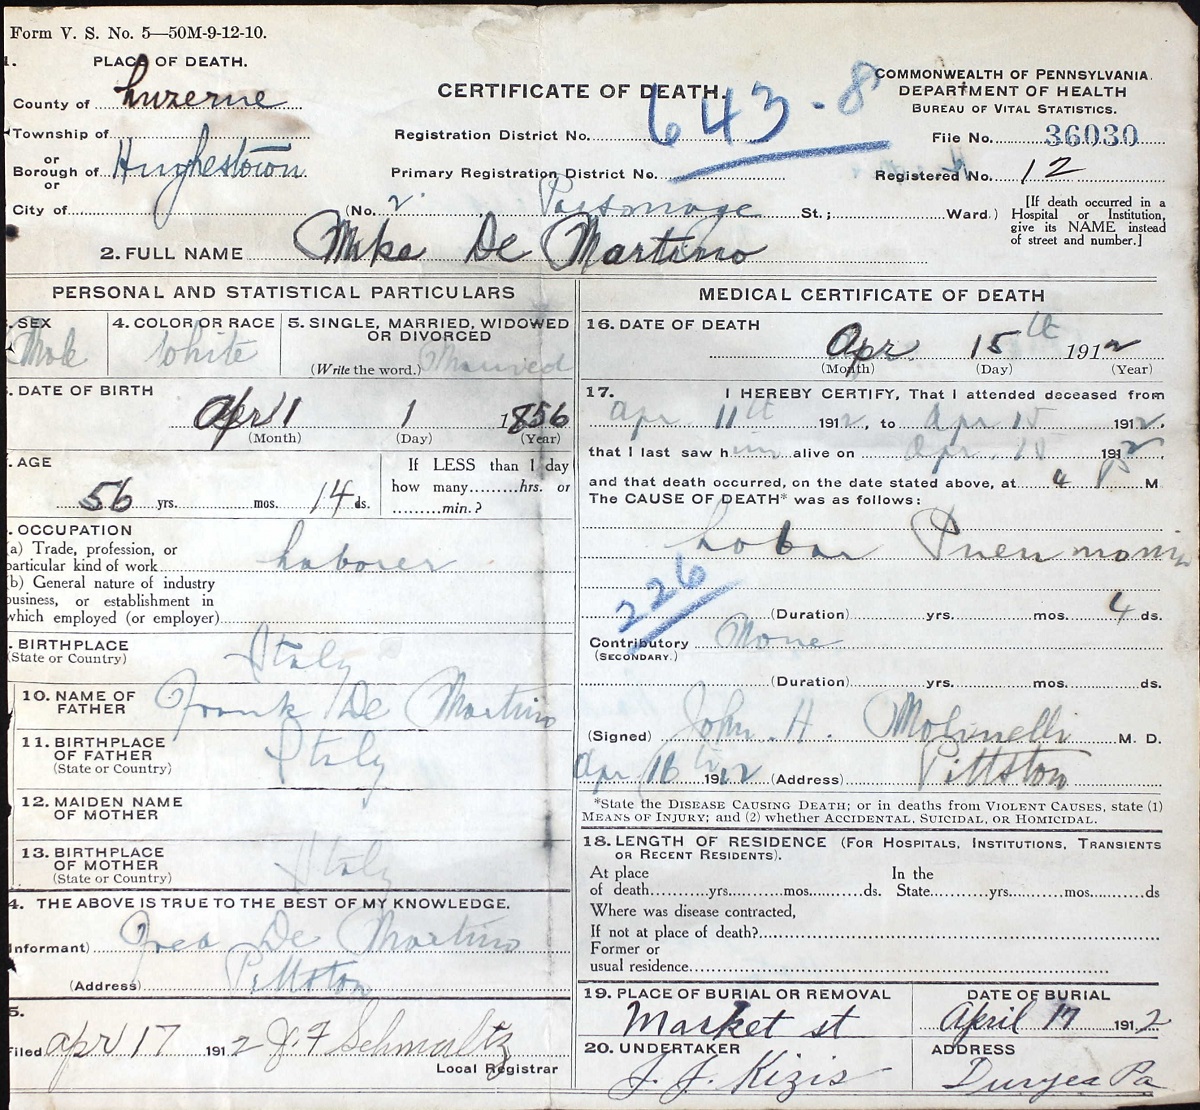 Form V. S. No. 5—50M-9-12-10.
1. PLACE OF DEATH.
County of Luzerne
Township of
or
Borough of Hughestown
or
City of
CERTIFICATE OF DEATH.
Registration District No. 643-8
Primary Registration District No.
(No. 2. Parsonage St.; Ward.)
COMMONWEALTH OF PENNSYLVANIA.
DEPARTMENT OF HEALTH
BUREAU OF VITAL STATISTICS.
File No. 36030
Registered No. 12
[If death occurred in a
Hospital or Institution,
give its NAME instead
of street and number.]
2. FULL NAME Mike De Martino
PERSONAL AND STATISTICAL PARTICULARS
SEX
Male
4. COLOR OR RACE
White
5. SINGLE, MARRIED, WIDOWED
OR DIVORCED
(Write the word.) Married
DATE OF BIRTH
April 1 1856
(Month) (Day) (Year)
AGE
56 yrs. mos. 14 ds.
If LESS than 1 day
how many hrs. or
min.?
OCCUPATION
(a) Trade, profession, or
particular kind of work Laborer
(b) General nature of industry
business, or establishment in
which employed (or employer)
BIRTHPLACE
(State or Country) Italy
10. NAME OF
FATHER Frank De Martino
11. BIRTHPLACE
OF FATHER
(State or Country) Italy
12. MAIDEN NAME
OF MOTHER
13. BIRTHPLACE
OF MOTHER
(State or Country) Italy
4. THE ABOVE IS TRUE TO THE BEST OF MY KNOWLEDGE.
Informant) De Martino
(Address) Pittston
5.
Filed Apr 17 1912 J. F. Schmaltz
Local Registrar
MEDICAL CERTIFICATE OF DEATH
16. DATE OF DEATH
Apr 15th 1912
(Month) (Day) (Year)
17. I HEREBY CERTIFY, That I attended deceased from
Apr. 11th 1912, to Apr 15 1912,
that I last saw him alive on Apr. 15 1912,
and that death occurred, on the date stated above, at 4 P M
The CAUSE OF DEATH* was as follows:
Lobar Pneumonia
226
(Duration) yrs. mos. 4 ds.
Contributory None
(SECONDARY.)
(Duration) yrs. mos. ds.
(Signed) John. H. Molinelli M. D.
Apr 16th 1912 (Address) Pittston
*State the DISEASE CAUSING DEATH; or in deaths from VIOLENT CAUSES, state (1)
MEANS OF INJURY; and (2) whether ACCIDENTAL, SUICIDAL, OR HOMICIDAL.
18. LENGTH OF RESIDENCE (FOR HOSPITALS, INSTITUTIONS, TRANSIENTS
OR RECENT RESIDENTS).
At place
of death yrs. mos. ds.
In the
State yrs. mos. ds
Where was disease contracted,
If not at place of death?
Former or
usual residence
19. PLACE OF BURIAL OR REMOVAL
Market st
DATE OF BURIAL
April 17 1912
20. UNDERTAKER
J. J. Kizis
ADDRESS
Duryea Pa